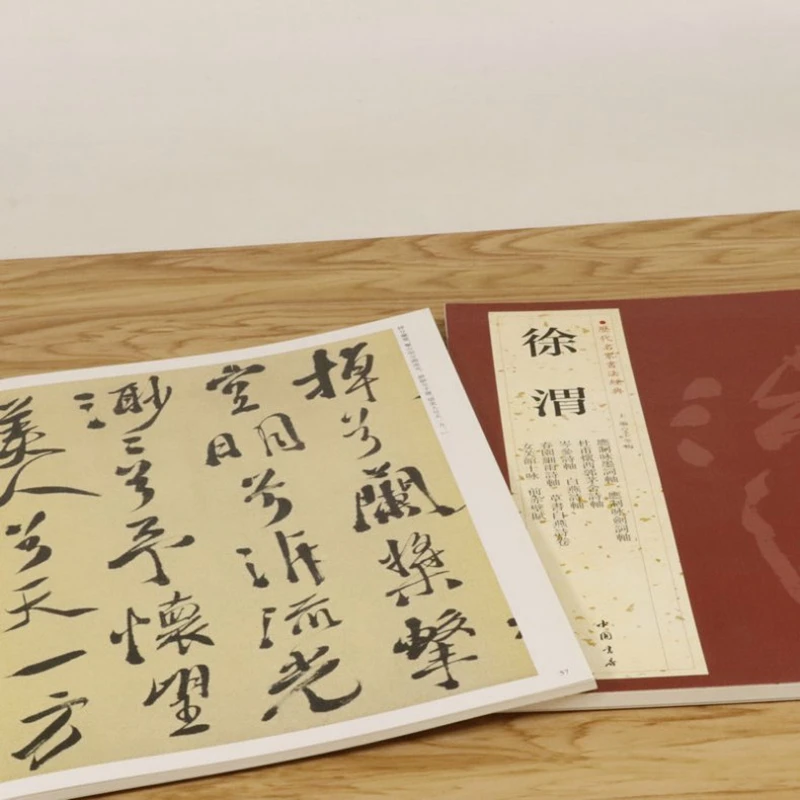 棹兮蘭槳擊
空明兮泝流光
渺〻兮予懷望
美人兮天一方
97
歷代名家書法經典
徐渭
應制咏墨詞軸 應制咏劍詞軸
杜甫懷西郭茅舍詩軸
岑參詩軸 白燕詩軸
春園細雨詩軸 草書白燕詩卷
女芙館十咏 前赤壁賦
中國書店